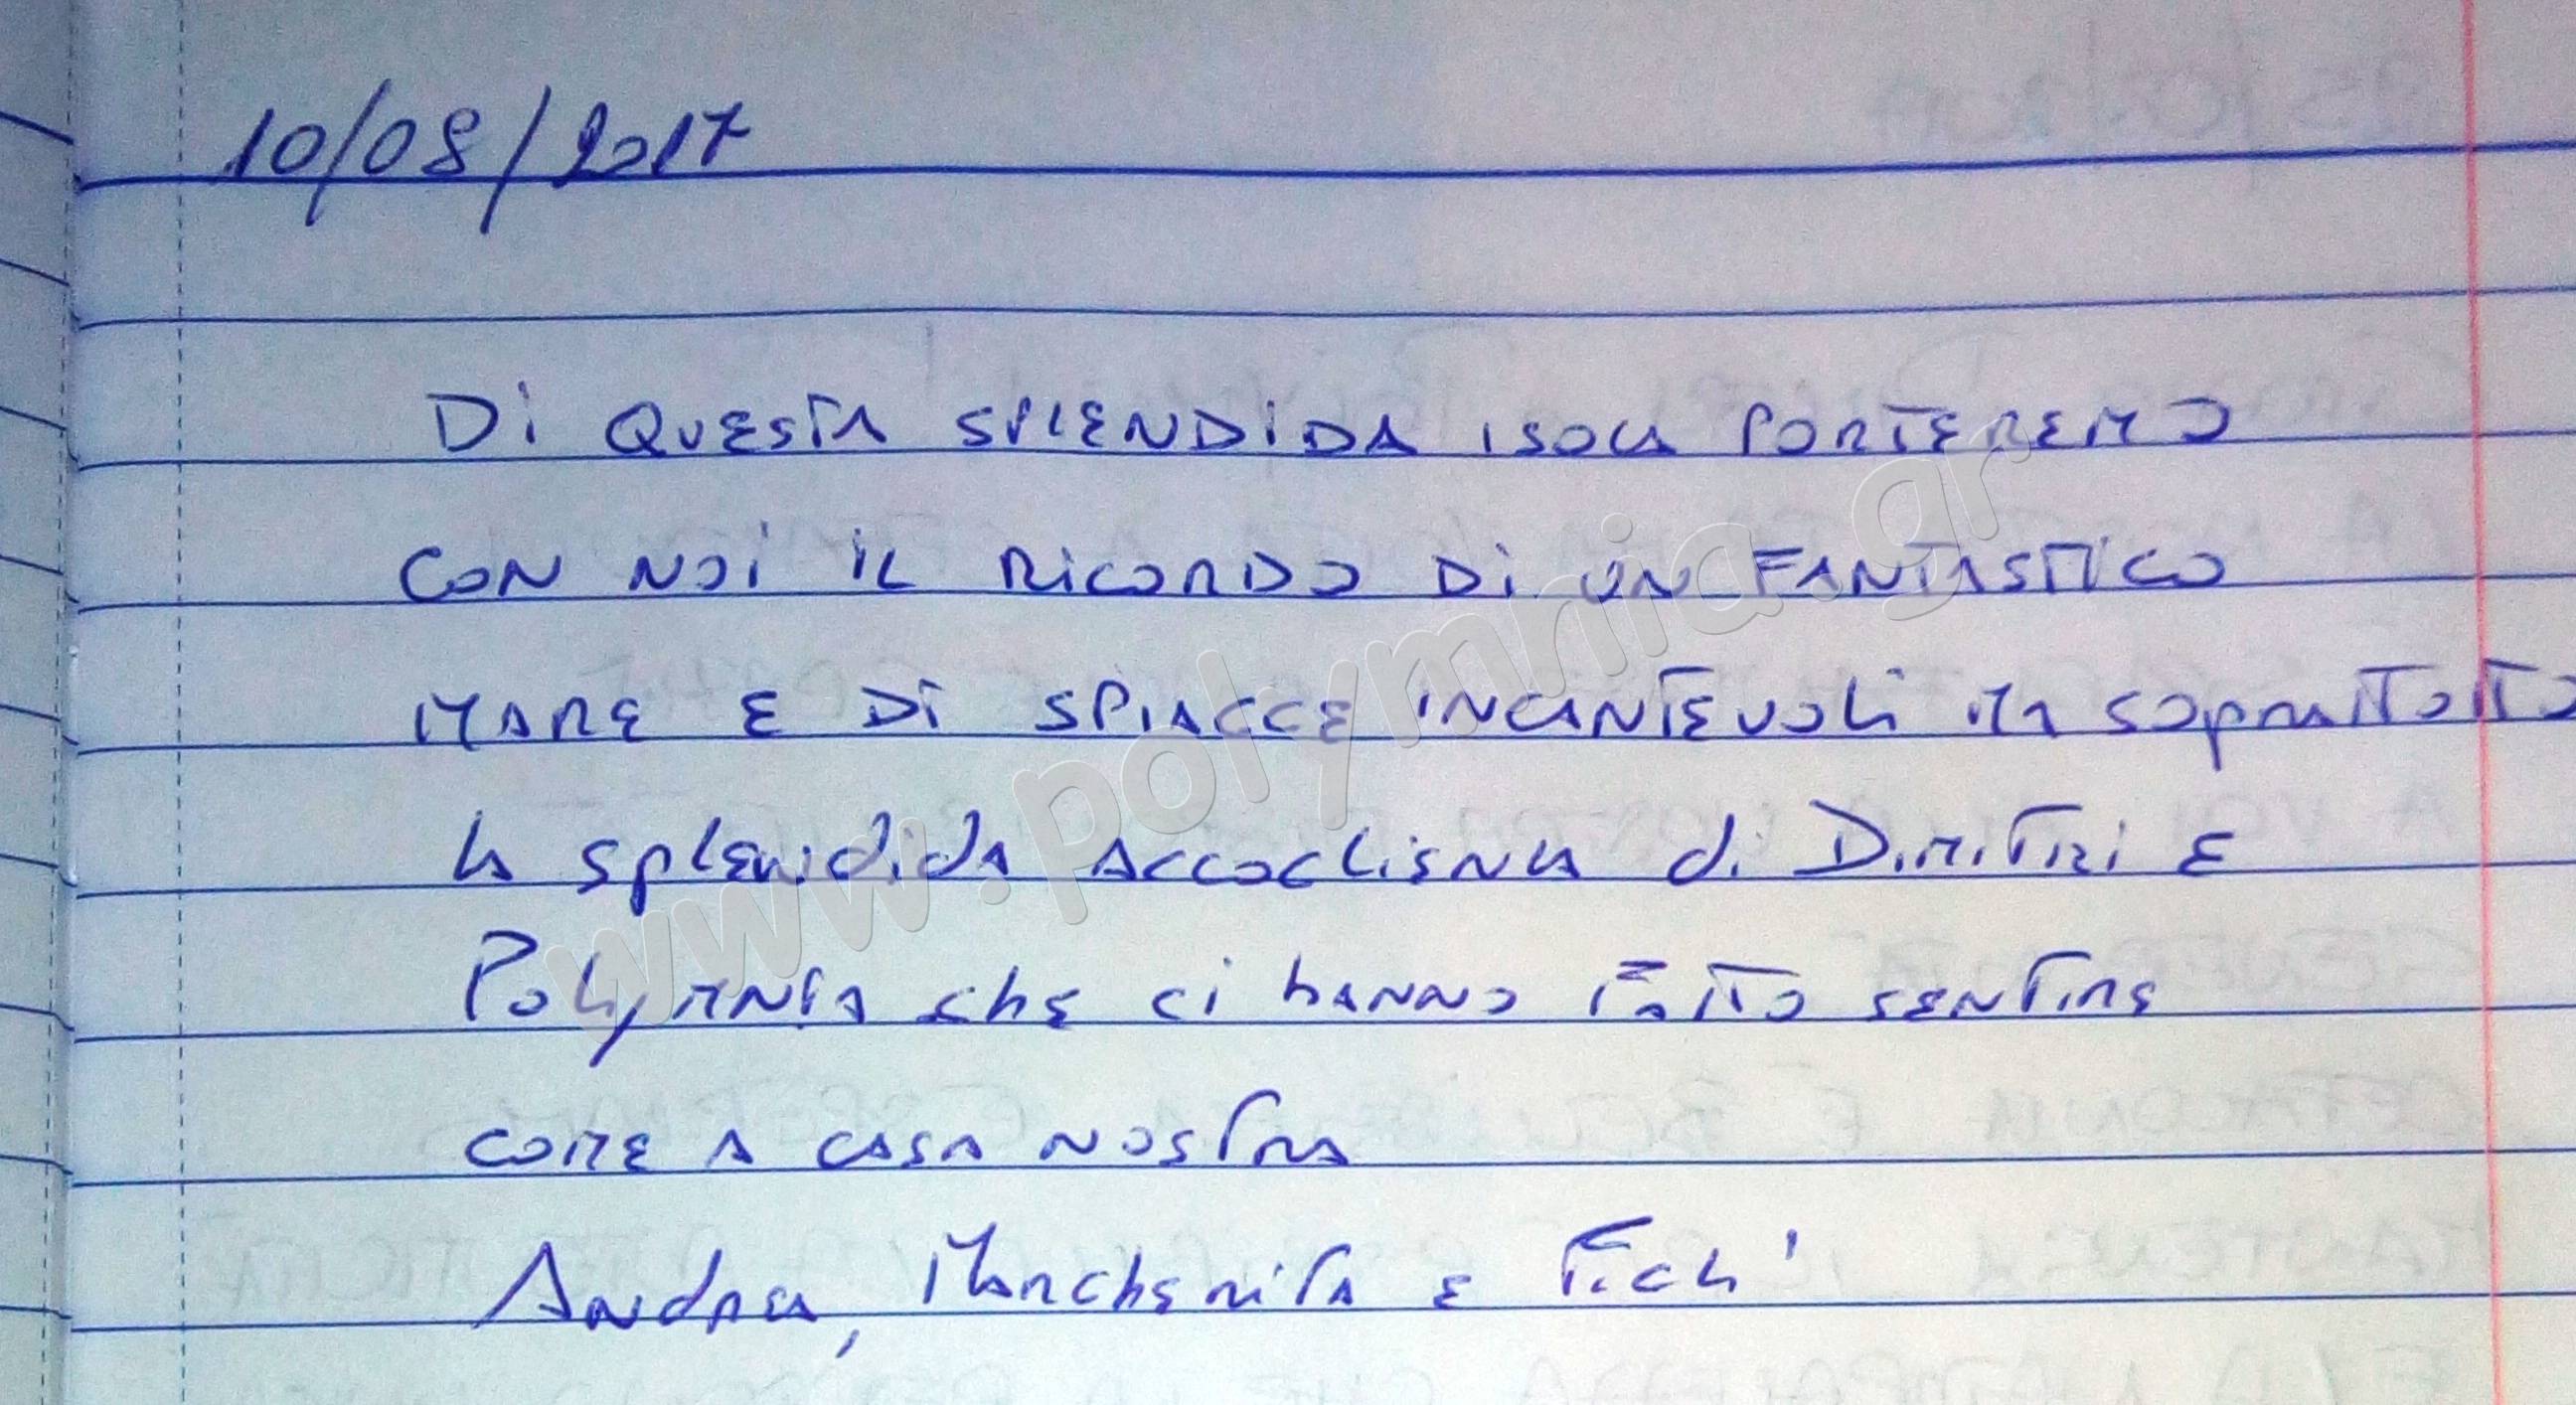 10/08/2017
DI QUESTA SPLENDIDA ISOLA PORTEREMO
CON NOI IL RICORDO DI UN FANTASTICO
MARE E DI SPIAGGE INCANTEVOLI MA SOPRATTUTTO
LA SPLENDIDA ACCOGLIENZA di DIMITRI E
POLYMNIA che ci hANNO FATTO SENTIRE
COME A CASA NOSTRA
ANdREA, MARGhERITA E
www.polymnia.gr